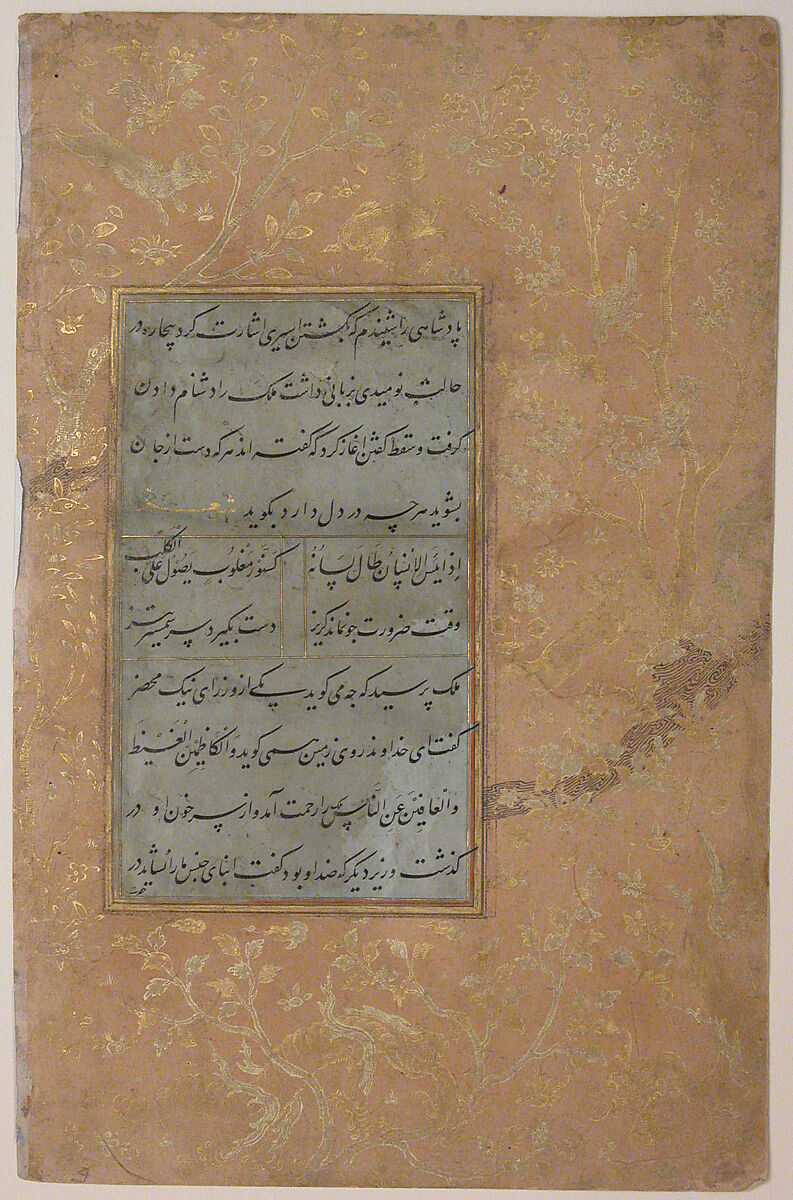 پادشاهی را شنیدم که بکشتن اسیری اشارت کرد بیچاره در
حالت نومیدی بزبانی که داشت ملک را دشنام دادن
گرفت و سقط گفتن آغاز کرد که گفته اند هر که دست از جان
بشوید هر چه در دل دارد بگوید شعر
اِذا یَئِسَ الاِنْسانُ طالَ لِسانُهُ کَسِنَّوْرٍ مَغْلُوبٍ یَصُولُ عَلَی الکَلْبِ
وقت ضرورت چو نماند گریز دست بگیرد سر شمشیر تیز
ملک پرسید که چه می کوید یکی از وزرای نیک محضر
گفت ای خداوند روی زمین همی کوید وَالْکاظِمِینَ الْغَیْظَ
وَالْعافِیْنَ عَنِ النَّاسِ ملک را رحمت آمد و از سر خون او در
گذشت وزیر دیگر که ضد او بود گفت ابنای جنس ما را نشاید در